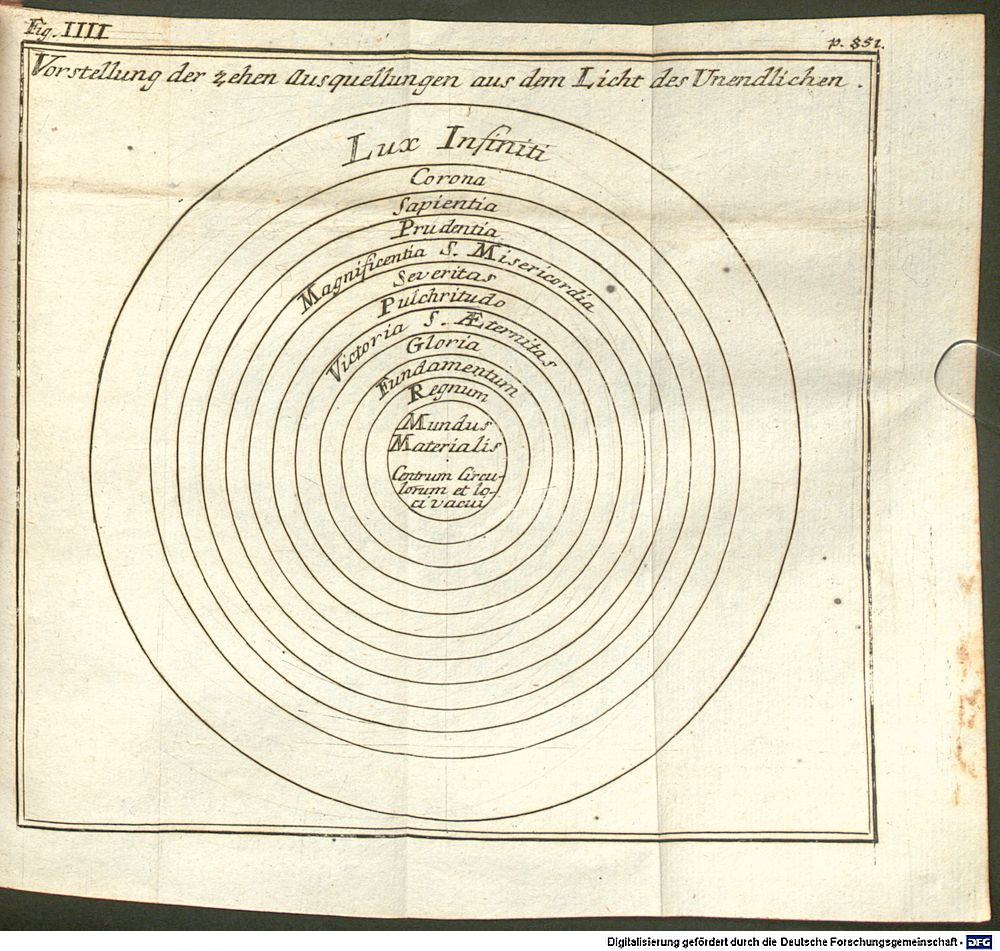 Fig. IIII
p. 851.
Vorstellung der zehen Ausquellungen aus dem Licht des Unendlichen.
Lux Infiniti
Corona
Sapientia
Prudentia
Magnificentia S. Misericordia
Severitas
Pulchritudo
Victoria S. Æternitas
Gloria
Fundamentum
Regnum
Mundus
Materialis
Centrum Circu-
lorum et lo-
ci vacui
Digitalisierung gefördert durch die Deutsche Forschungsgemeinschaft - DFG